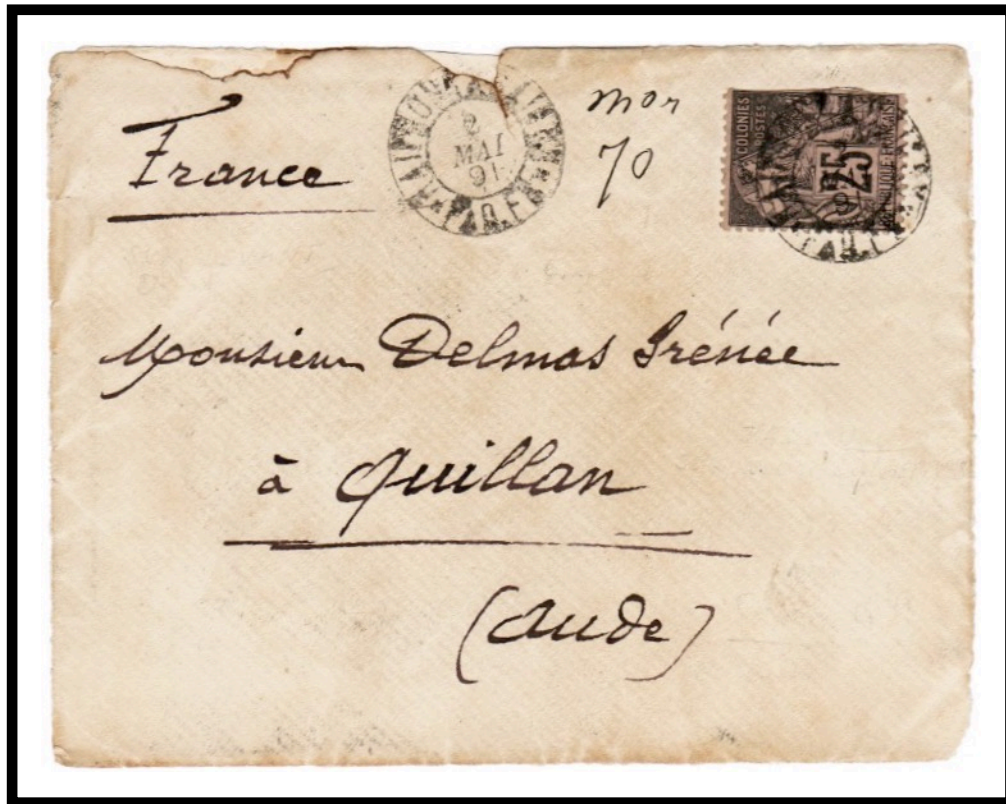 France
2
MAI
91
mon
70
COLONIES
POSTES
25
RÉPUBLIQUE FRANÇAISE
Monsieur Delmas Irénée
à Quillan
(Aude)